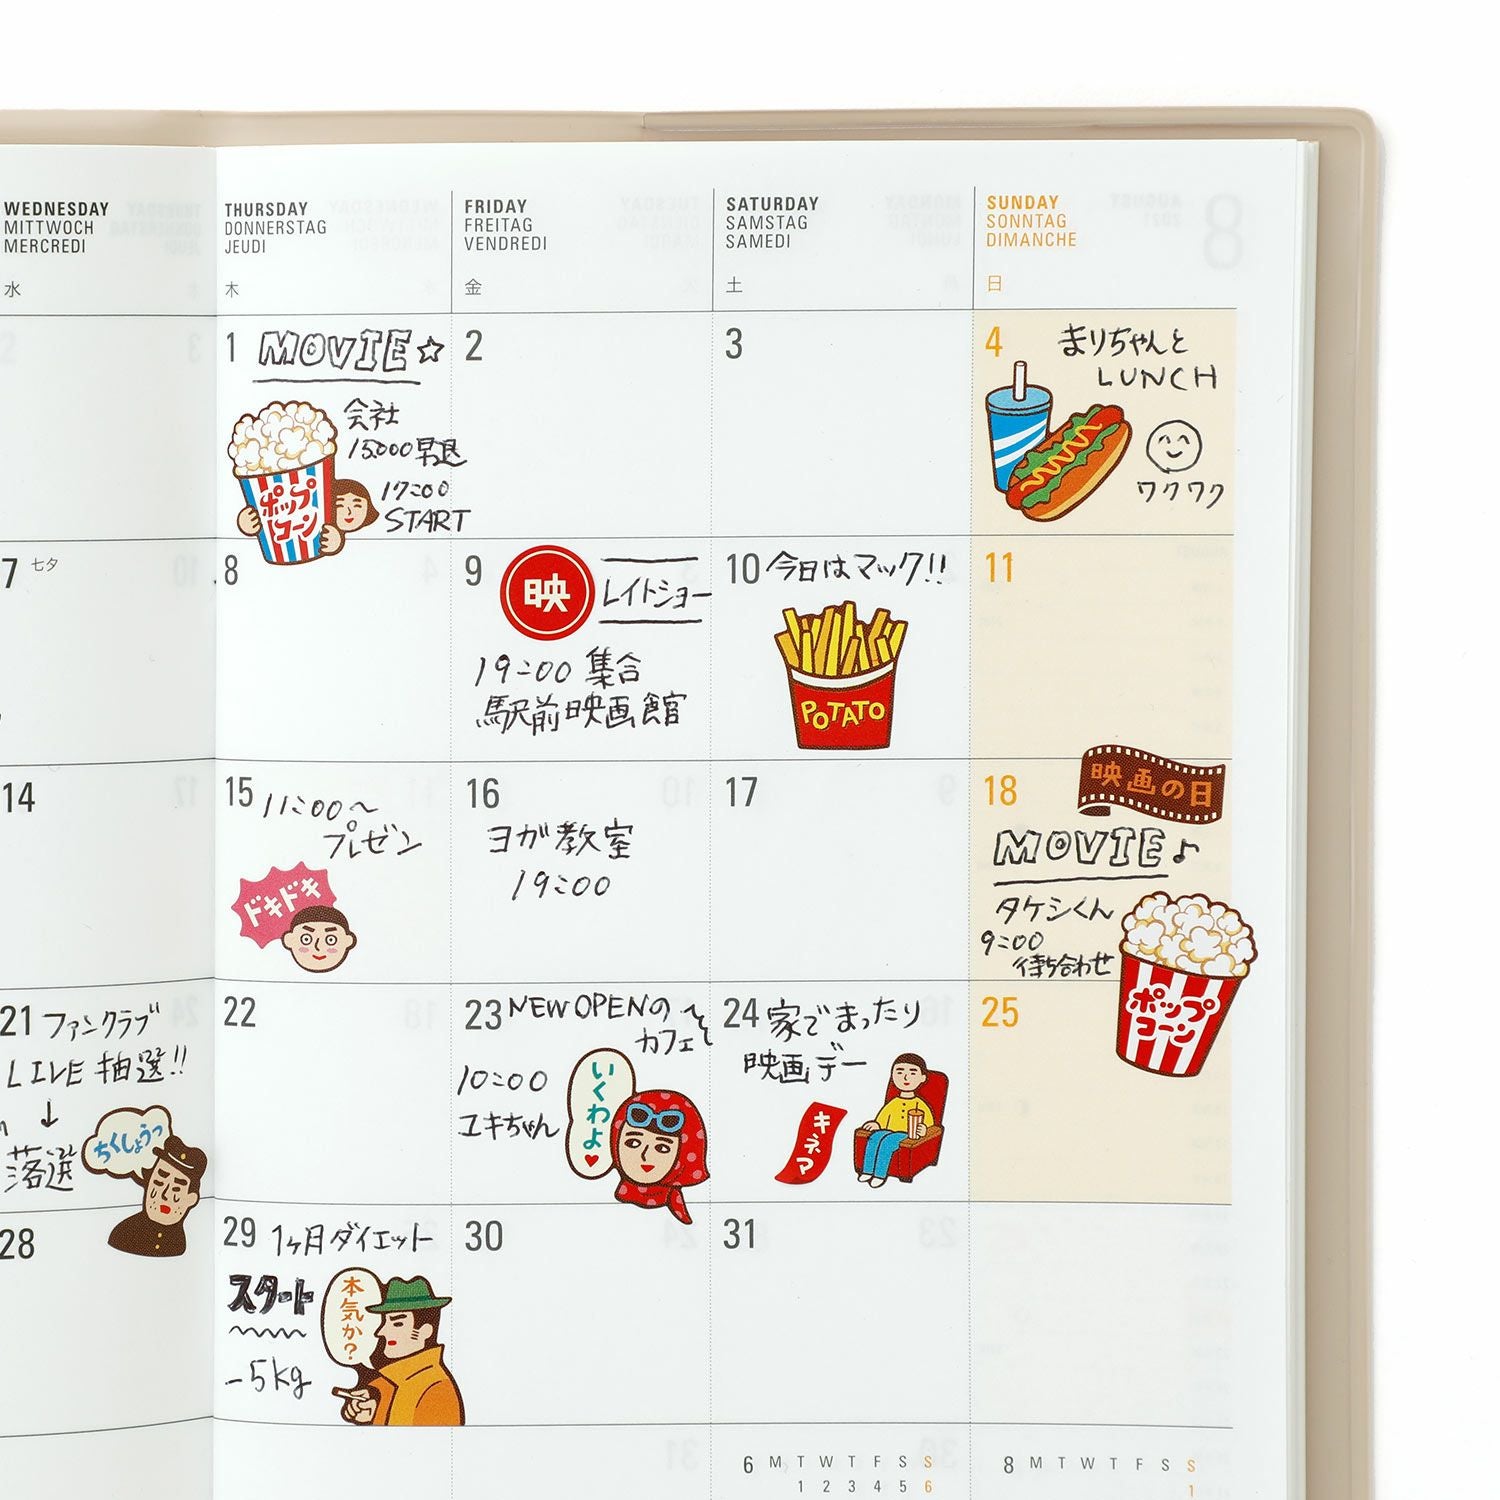 WEDNESDAY
MITTWOCH
MERCREDI
水
THURSDAY
DONNERSTAG
JEUDI
木
FRIDAY
FREITAG
VENDREDI
金
SATURDAY
SAMSTAG
SAMEDI
土
SUNDAY
SONNTAG
DIMANCHE
日
1 MOVIE☆
会社
15:00早退
17:00
START
ポップ
コーン
2
3
4 まりちゃんと
LUNCH
ワクワク
7 七夕
8
9 映 レイトショー
19:00 集合
駅前映画館
10 今日はマック!!
POTATO
11
14
15 11:00〜
プレゼン
ドキドキ
16
ヨガ教室
19:00
17
18 映画の日
MOVIE♪
タケシくん
9:00
待ち合わせ
ポップ
コーン
21 ファンクラブ
LIVE 抽選!!
↓
落選
ちくしょうっ
22
23 NEW OPENの
カフェ
10:00
ユキちゃん
いくわよ♥
24 家でまったり
映画デー
キネマ
25
28
29 1ヶ月ダイエット
スタート
-5kg
本気か?
30
31
6 M T W T F S S
1 2 3 4 5 6
8 M T W T F S S
1